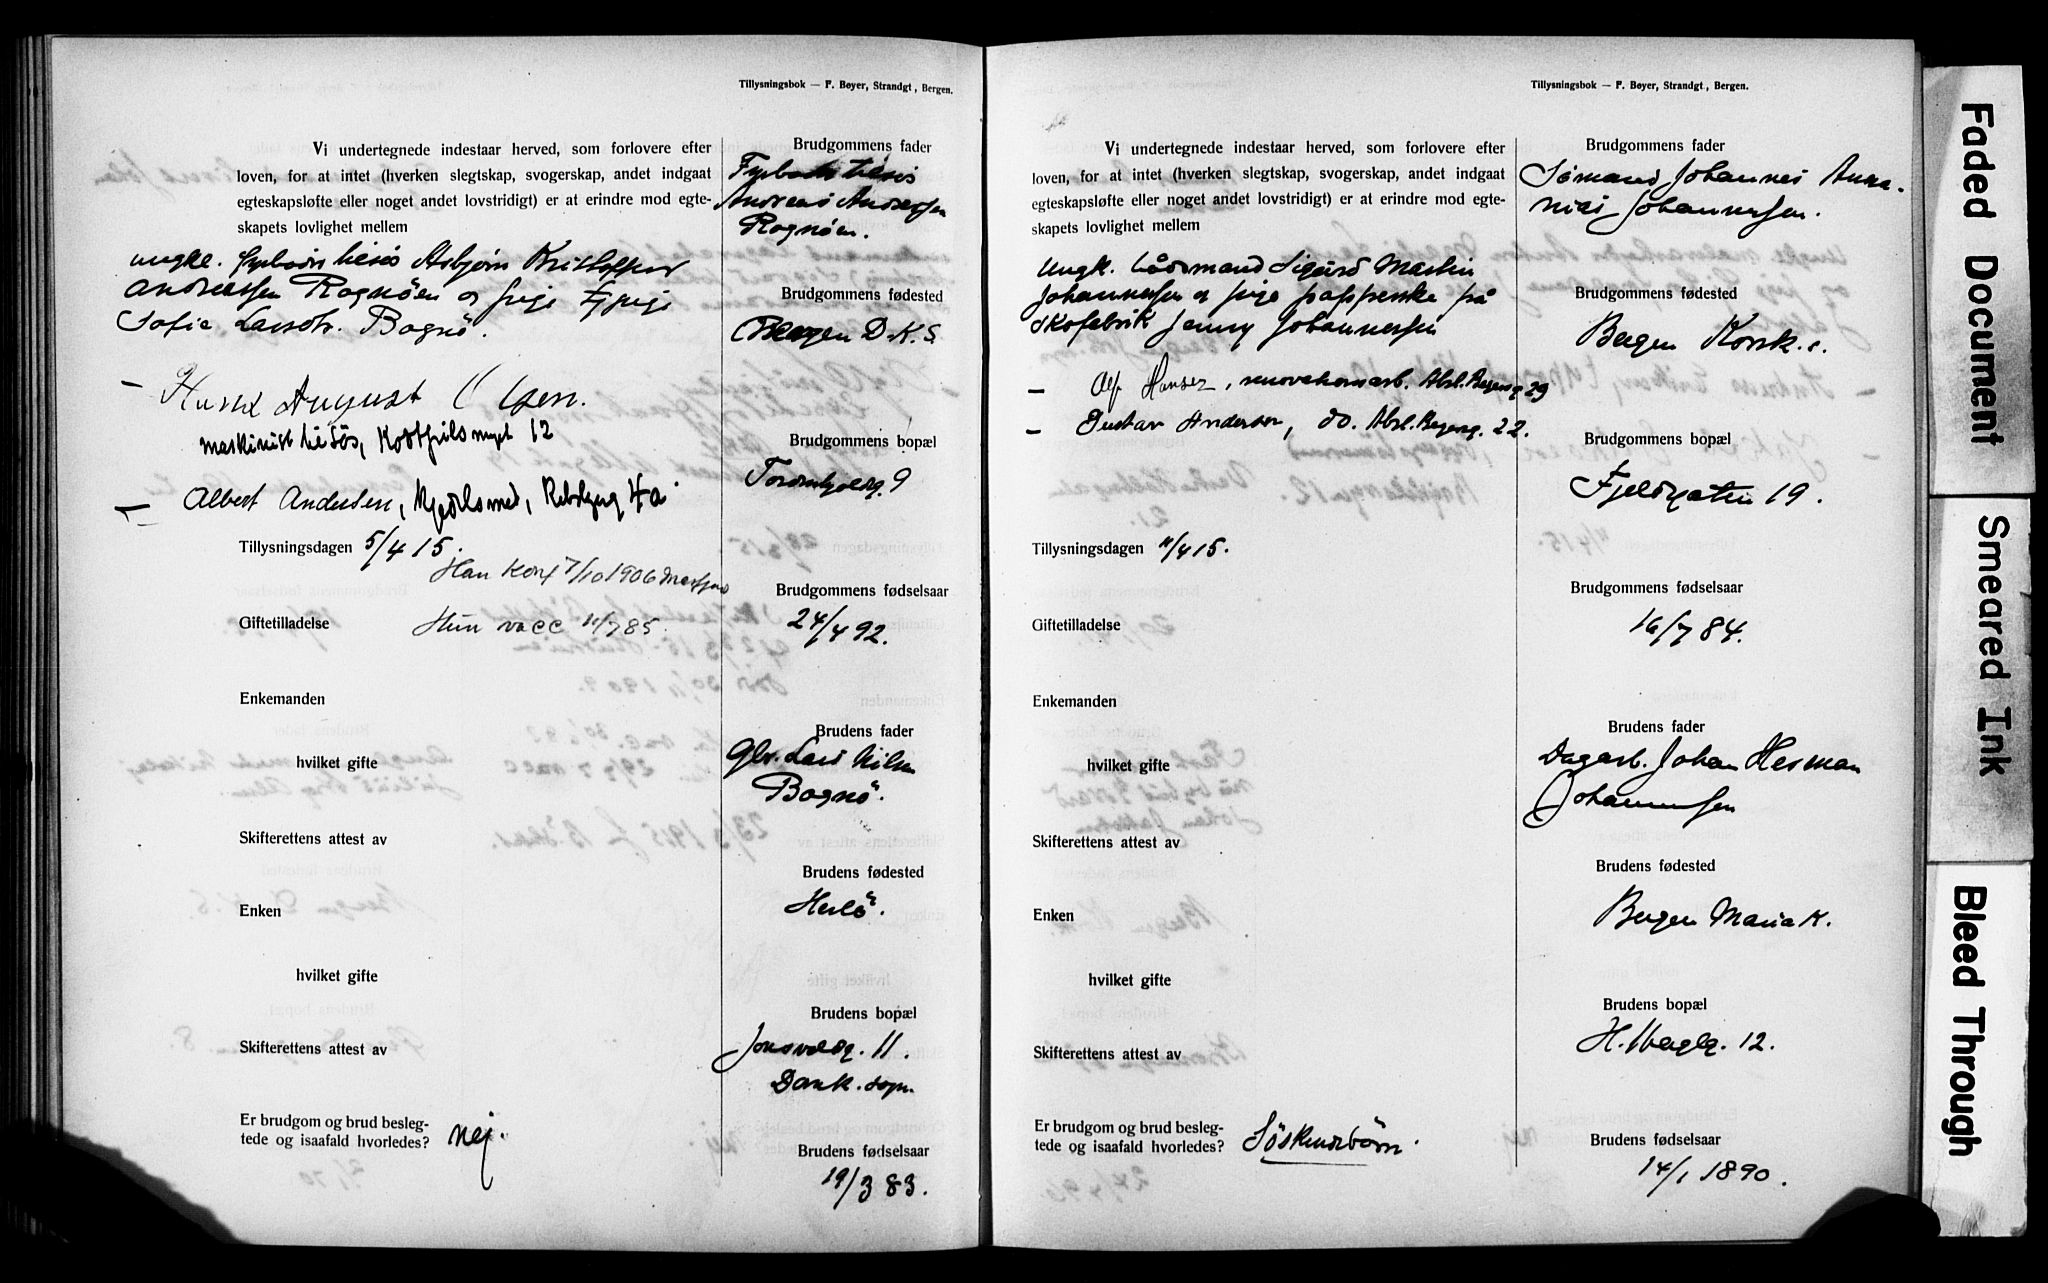 Tillysningsbok — F. Bøyer, Strandgt., Bergen.
Vi undertegnede indestaar herved, som forlovere efter
loven, for at intet (hverken slegtskap, svogerskap, andet indgaat
egteskapsløfte eller noget andet lovstridigt) er at erindre mod egte-
skapets lovlighet mellem
ungk. fyrbøter tilsøs Asbjørn Kristoffer
Andreassen Rognøen og pige
Sofie Larsdtr. Bognø.
— August Olsen.
maskinist tilsøs, 12
— Albert Andersen, kjedelsmed, 4a
Tillysningsdagen 5/4 15.
Han konf 7/10 1906
Giftetilladelse
Hun vacc 11/7 85.
Enkemanden
hvilket gifte
Skifterettens attest av
Enken
hvilket gifte
Skifterettens attest av
Er brudgom og brud besleg-
tede og isaafald hvorledes? nej.
Brudgommens fader
Fyrbøter tilsøs
Andreas Andersen
Rognøen.
Brudgommens fødested
Bergen D.K.S.
Brudgommens bopæl
Tordenskjoldsg. 9
Brudgommens fødselsaar
24/4 92.
Brudens fader
Gbr. Lars Nilsen
Bognø.
Brudens fødested
Herlö.
Brudens bopæl
Jonsvoldsg. 11.
Domk. sogn
Brudens fødselsaar
19/3 83.
Tillysningsbok — F. Bøyer, Strandgt., Bergen.
Vi undertegnede indestaar herved, som forlovere efter
loven, for at intet (hverken slegtskap, svogerskap, andet indgaat
egteskapsløfte eller noget andet lovstridigt) er at erindre mod egte-
skapets lovlighet mellem
Ungk. Sigurd Martin
Johannessen og pige på
skofabrik Jenny Johannessen
— Alf Hansen, renovationsarb. Absl. Beyersg 29
— Gustav Andersen, do. Absl. Beyersg. 22.
Tillysningsdagen 11/4 15.
Giftetilladelse
Enkemanden
hvilket gifte
Skifterettens attest av
Enken
hvilket gifte
Skifterettens attest av
Er brudgom og brud besleg-
tede og isaafald hvorledes? Söskendebörn.
Brudgommens fader
Sömand Johannes Anna-
nias Johannessen.
Brudgommens fødested
Bergen Korsk.s.
Brudgommens bopæl
Fjeldgaten 19.
Brudgommens fødselsaar
16/7 84.
Brudens fader
Dagarb. Johan Herman
Johannessen
Brudens fødested
Bergen Mariak.
Brudens bopæl
H. 12.
Brudens fødselsaar
14/1 1890.
Faded Document
Smeared Ink
Bleed Through